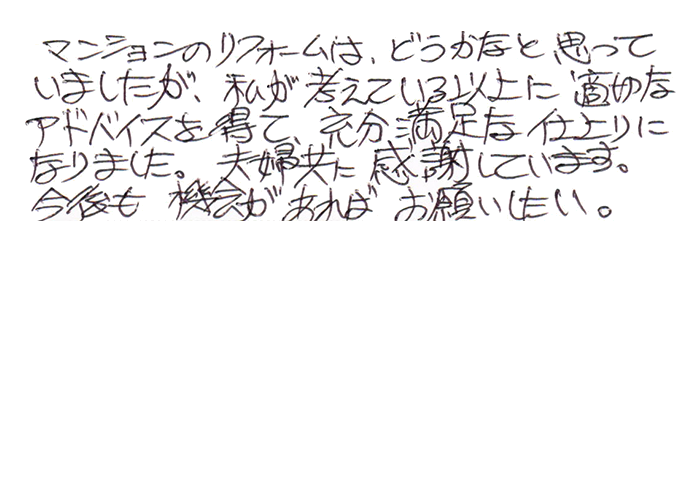 マンションのリフォームは、どうかなと思って
いましたが、私が考えている以上に適切な
アドバイスを得て、充分満足な仕上りに
なりました。夫婦共に感謝しています。
今後も機会があればお願いしたい。